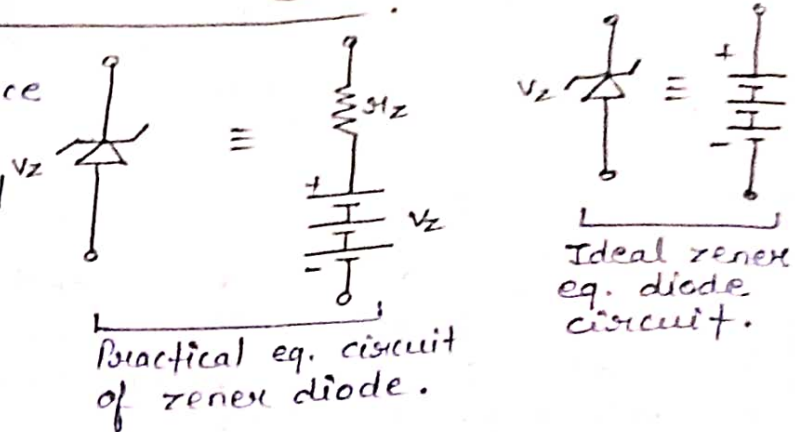 ce
Vz
≡
rz
+
Vz
-
Practical eq. circuit
of zener diode.
Vz
≡
+
-
Ideal zener
eq. diode
circuit.